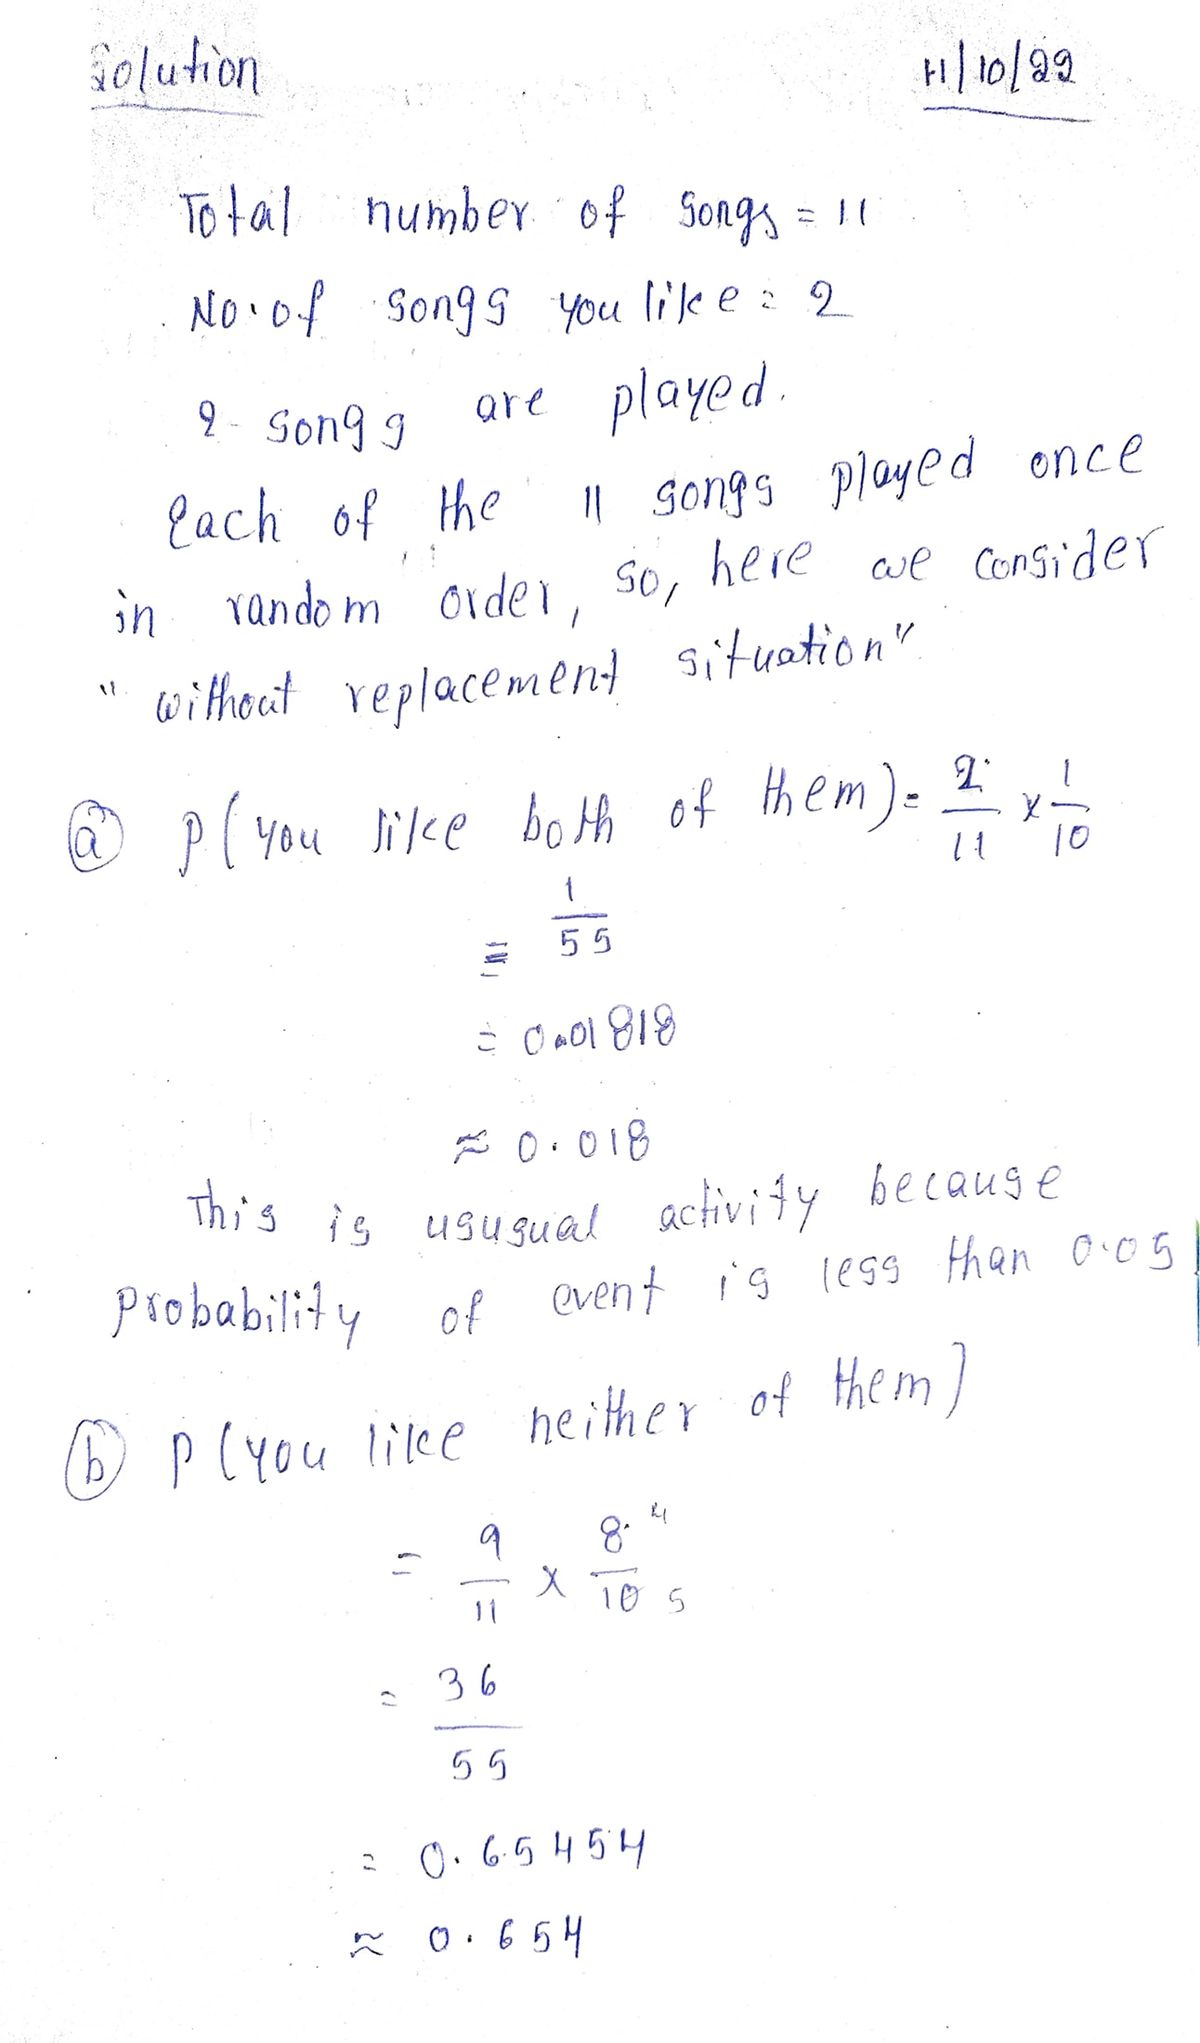 Solution
11/10/22
Total number of songs = 11
No. of songs you like = 2
2 songs are played.
Each of the 11 songs played once
in random order, so, here we consider
" without replacement situation"
(a) P(you like both of them) = 2/11 x 1/10
= 1/55
= 0.01818
≈ 0.018
This is ususual activity because
probability of event is less than 0.05
(b) P(you like neither of them)
= 9/11 x 8/10 4 5
= 36/55
= 0.65454
≈ 0.654